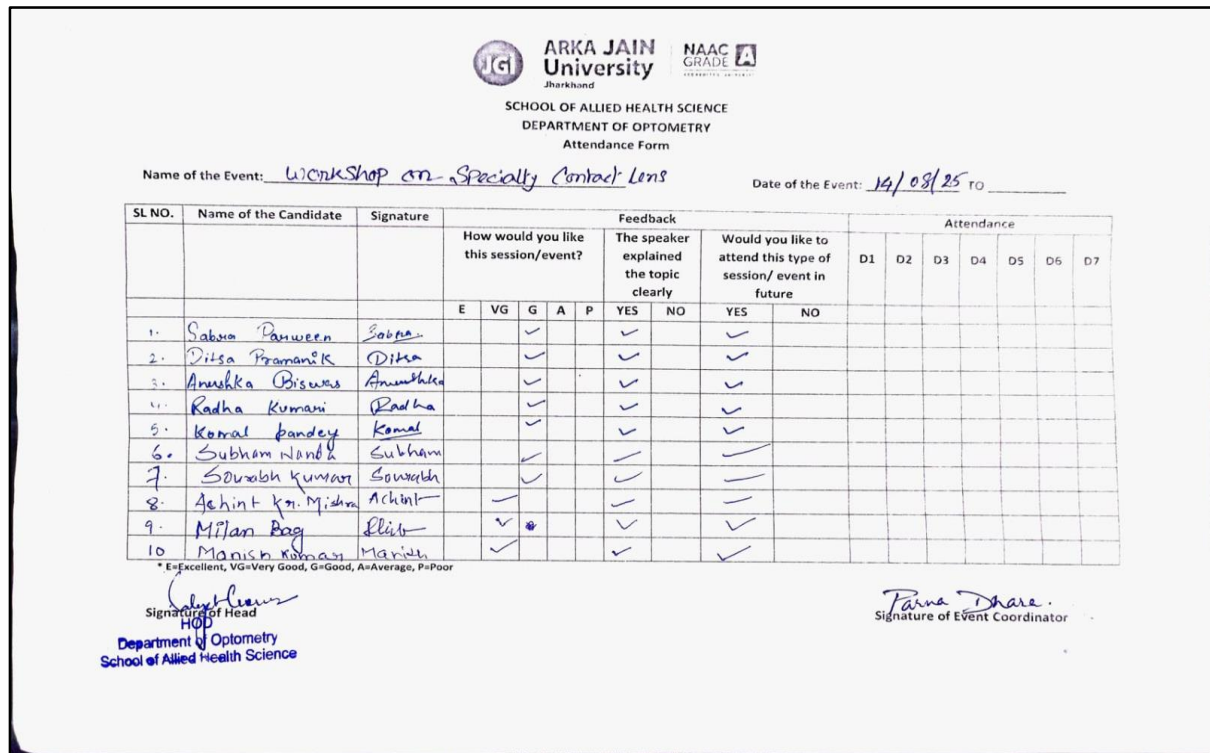 JGI
ARKA JAIN
University
Jharkhand
NAAC
GRADE A
SCHOOL OF ALLIED HEALTH SCIENCE
DEPARTMENT OF OPTOMETRY
Attendance Form
Name of the Event: Workshop on Specialty Contact Lens
Date of the Event: 14/08/25 TO
SL NO. Name of the Candidate Signature Feedback Attendance
How would you like this session/event? The speaker explained the topic clearly Would you like to attend this type of session/ event in future D1 D2 D3 D4 D5 D6 D7
E VG G A P YES NO YES NO
1. Sabra Parween Sabra ✓ ✓ ✓
2. Ditsa Pramanik Ditsa ✓ ✓ ✓
3. Anushka Biswas Anushka ✓ ✓ ✓
4. Radha Kumari Radha ✓ ✓ ✓
5. Komal pandey Komal ✓ ✓ ✓
6. Subham Nanda Subham ✓ ✓ ✓
7. Sourabh Kumar Sourabh ✓ ✓ ✓
8. Achint Kr. Mishra Achint ✓ ✓ ✓
9. Milan Bag ✓ ✓ ✓
10 Manish Kumar Manish ✓ ✓ ✓
* E=Excellent, VG=Very Good, G=Good, A=Average, P=Poor
Signature of Head
HOD
Department of Optometry
School of Allied Health Science
Parna Dhara.
Signature of Event Coordinator